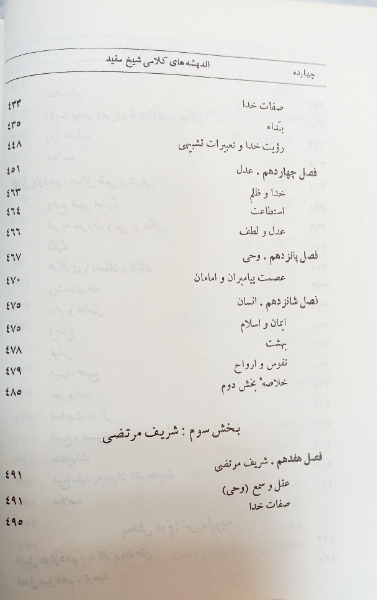 چهارده اندیشه‌های کلامی شیخ مفید
صفات خدا ۴۳۳
بداء ۴۳۵
رؤیت خدا و تعبیرات تشبیهی ۴۴۸
فصل چهاردهم . عدل ۴۵۱
خدا و ظلم ۴۶۳
استطاعت ۴۶۴
عدل و لطف ۴۶۶
فصل پانزدهم . وحی ۴۶۷
عصمت پیامبران و امامان ۴۷۰
فصل شانزدهم . انسان ۴۷۵
ایمان و اسلام ۴۷۵
بهشت ۴۷۸
نفوس و ارواح ۴۷۹
خلاصهٔ بخش دوم ۴۸۵
بخش سوم : شریف مرتضی
فصل هفدهم . شریف مرتضی ۴۹۱
عقل و سمع (وحی) ۴۹۱
صفات خدا ۴۹۵